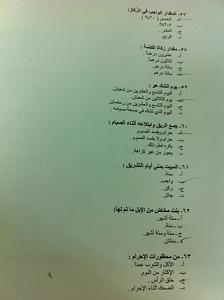 ٥٧- المقدار الواجب في الركاز:
أ- الخمس (٢٠٪).
ب- ٢٫٥٪.
ج- العشر.
د- الربع.
٥٨- مقدار زكاة الفضة:
أ- عشرون درهماً.
ب- ثلاثون درهماً.
ج- مائة درهم.
د- مائتا درهم.
٥٩- يوم الشك هو:
أ- اليوم التاسع والعشرين من شعبان.
ب- اليوم الثلاثون من شعبان.
ج- اليوم التاسع والعشرين من رمضان.
د- اليوم الذي شك في صحة صيامه.
٦٠- جمع الريق وابتلاعه أثناء الصيام:
أ- حرام ويفسد الصوم.
ب- حرام ولا يفسد الصوم.
ج- يكره فعل ذلك.
د- يجوز من غير كراهة.
٦١- المبيت بمنى أيام التشريق:
أ- سنة.
ب- واجب.
ج- ركن.
د- جائز.
٦٢- بنت مخاض من الإبل ما تم لها:
أ- ستة أشهر.
ب- سنة.
ج- سنة وستة أشهر.
د- سنتان.
٦٣- من محظورات الإحرام:
أ- الأكل والشرب عمداً.
ب- الإكثار من النوم.
ج- حلق الرأس.
د- الضحك أثناء الإحرام.